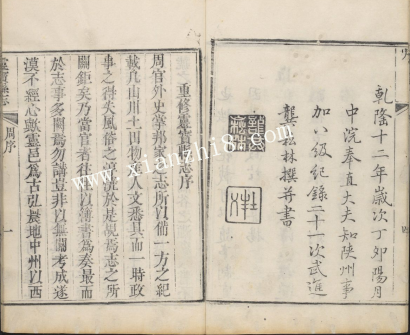 乾隆十二年歲次丁卯陽月
中浣奉直大夫知陝州事
加八級紀錄二十一次武進
龔崧林撰并書
重修靈寶縣志序
周官外史掌邦國之志所以備一方之紀
載凡山川土田物產人文悉具而一時政
事之得失風俗之淳澆於是覘焉志之所
關鉅矣乃當官者往往以簿書為奏最而
於志事多闕焉勿講豈非以無關考成遂
漠不經心歟靈邑為古弘農地中州以西
周序
www.xianzhi8.com